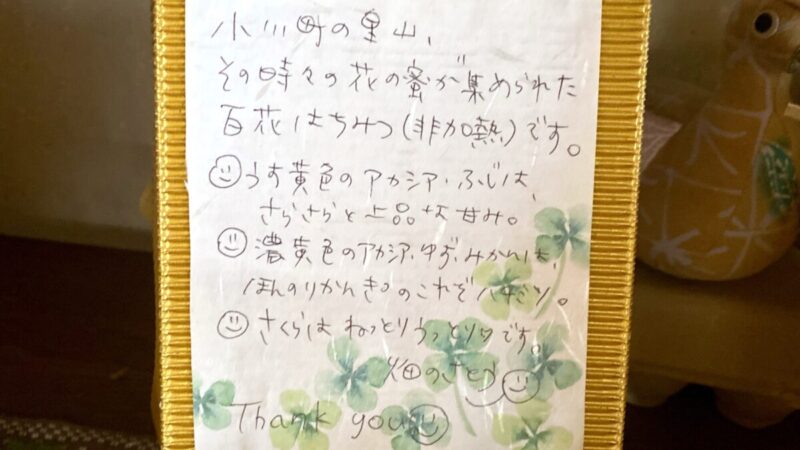 小川町の里山、
その時々の花の蜜が集められた
百花はちみつ(非加熱)です。
うす黄色のアカシア・ふじは、
さらさらと上品な甘み。
濃黄色のアカシア・ゆず・みかんは、
ほんのりかんきつのこれぞハチミツ。
さくらは ねっとりうっとり♡です。
畑のさとう
Thank you